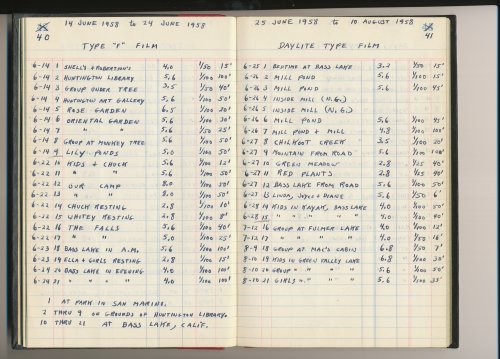 14 JUNE 1958 TO 24 JUNE 1958
40
TYPE "F" FILM
6-14 1 SHELL'S & ROBERTSON'S 4.0 1/50 15'
6-14 2 HUNTINGTON LIBRARY 5.6 1/100 100'
6-14 3 GROUP UNDER TREE 3.5 1/50 40'
6-14 4 HUNTINGTON ART GALLERY 5.6 1/100 50'
6-14 5 ROSE GARDEN 6.5 1/100 20'
6-14 6 ORIENTAL GARDEN 5.6 1/100 30'
6-14 7 " " 5.6 1/50 25'
6-14 8 GROUP AT MONKEY TREE 5.6 1/100 50'
6-14 9 LILY PONDS 5.0 1/100 50'
6-22 10 KIDS & CHUCK 5.6 1/100 12'
6-22 11 " " 5.6 1/100 50'
6-22 12 OUR CAMP 8.0 1/100 50'
6-22 13 " " 8.0 1/100 50'
6-22 14 CHUCK RESTING 2.8 1/100 10'
6-22 15 WHITEY RESTING 2.8 1/100 8'
6-22 16 THE FALLS 5.6 1/100 40'
6-22 17 " " 5.0 1/100 25'
6-23 18 BASS LAKE IN A.M. 5.6 1/100 100'
6-23 19 ELLA & GIRLS RESTING 2.8 1/100 15'
6-24 20 BASS LAKE IN EVENING 4.0 1/100 100'
6-24 21 " " " " 4.0 1/100 100'
1 AT PARK IN SAN MARINE.
2 THRU 9 ON GROUNDS OF HUNTINGTON LIBRARY.
10 THRU 21 AT BASS LAKE, CALIF.
25 JUNE 1958 TO 10 AUGUST 1958
41
DAYLITE TYPE FILM
6-25 1 BEDTIME AT BASS LAKE 3.2 1/50 15'
6-26 2 MILL POND 5.6 1/100 15'
6-26 3 MILL POND 5.6 1/100 45'
6-26 4 INSIDE MILL (N.G.)
6-26 5 INSIDE MILL (N.G.)
6-26 6 MILL POND 5.6 1/100 45'
6-26 7 MILL POND & MILL 4.8 1/100 100'
6-27 8 CHILKOOT CREEK 3.5 1/100 20'
6-27 9 MOUNTAIN FROM ROAD 5.6 1/100
6-27 10 GREEN MEADOW 2.8 1/25 40'
6-27 11 RED PLANTS 2.8 1/25 40'
6-27 12 BASS LAKE FROM ROAD 5.6 1/100 50'
6-27 13 LINDA, JOYCE & DIANE 5.6 1/50 6'
6-28 14 KIDS IN KAYAK, BASS LAKE 4.0 1/100 50'
6-28 15 " " " " " 4.0 1/100 90'
7-12 16 GROUP AT FULMER LAKE 4.0 1/100 12'
7-12 17 " " " " 4.0 1/50 15'
8-9 18 GROUP AT MAC'S CABIN 6.8 1/50 7'
8-10 19 KIDS IN GREEN VALLEY LAKE 6.8 1/100 30'
8-10 20 GROUP " " " " 5.6 1/100 50'
8-10 21 GIRLS " " " " 5.6 1/100 35'